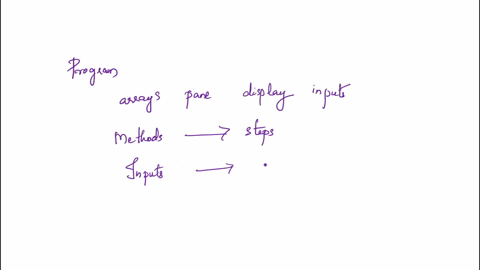 Program
arrays pane display inputs
Methods → steps
Inputs →